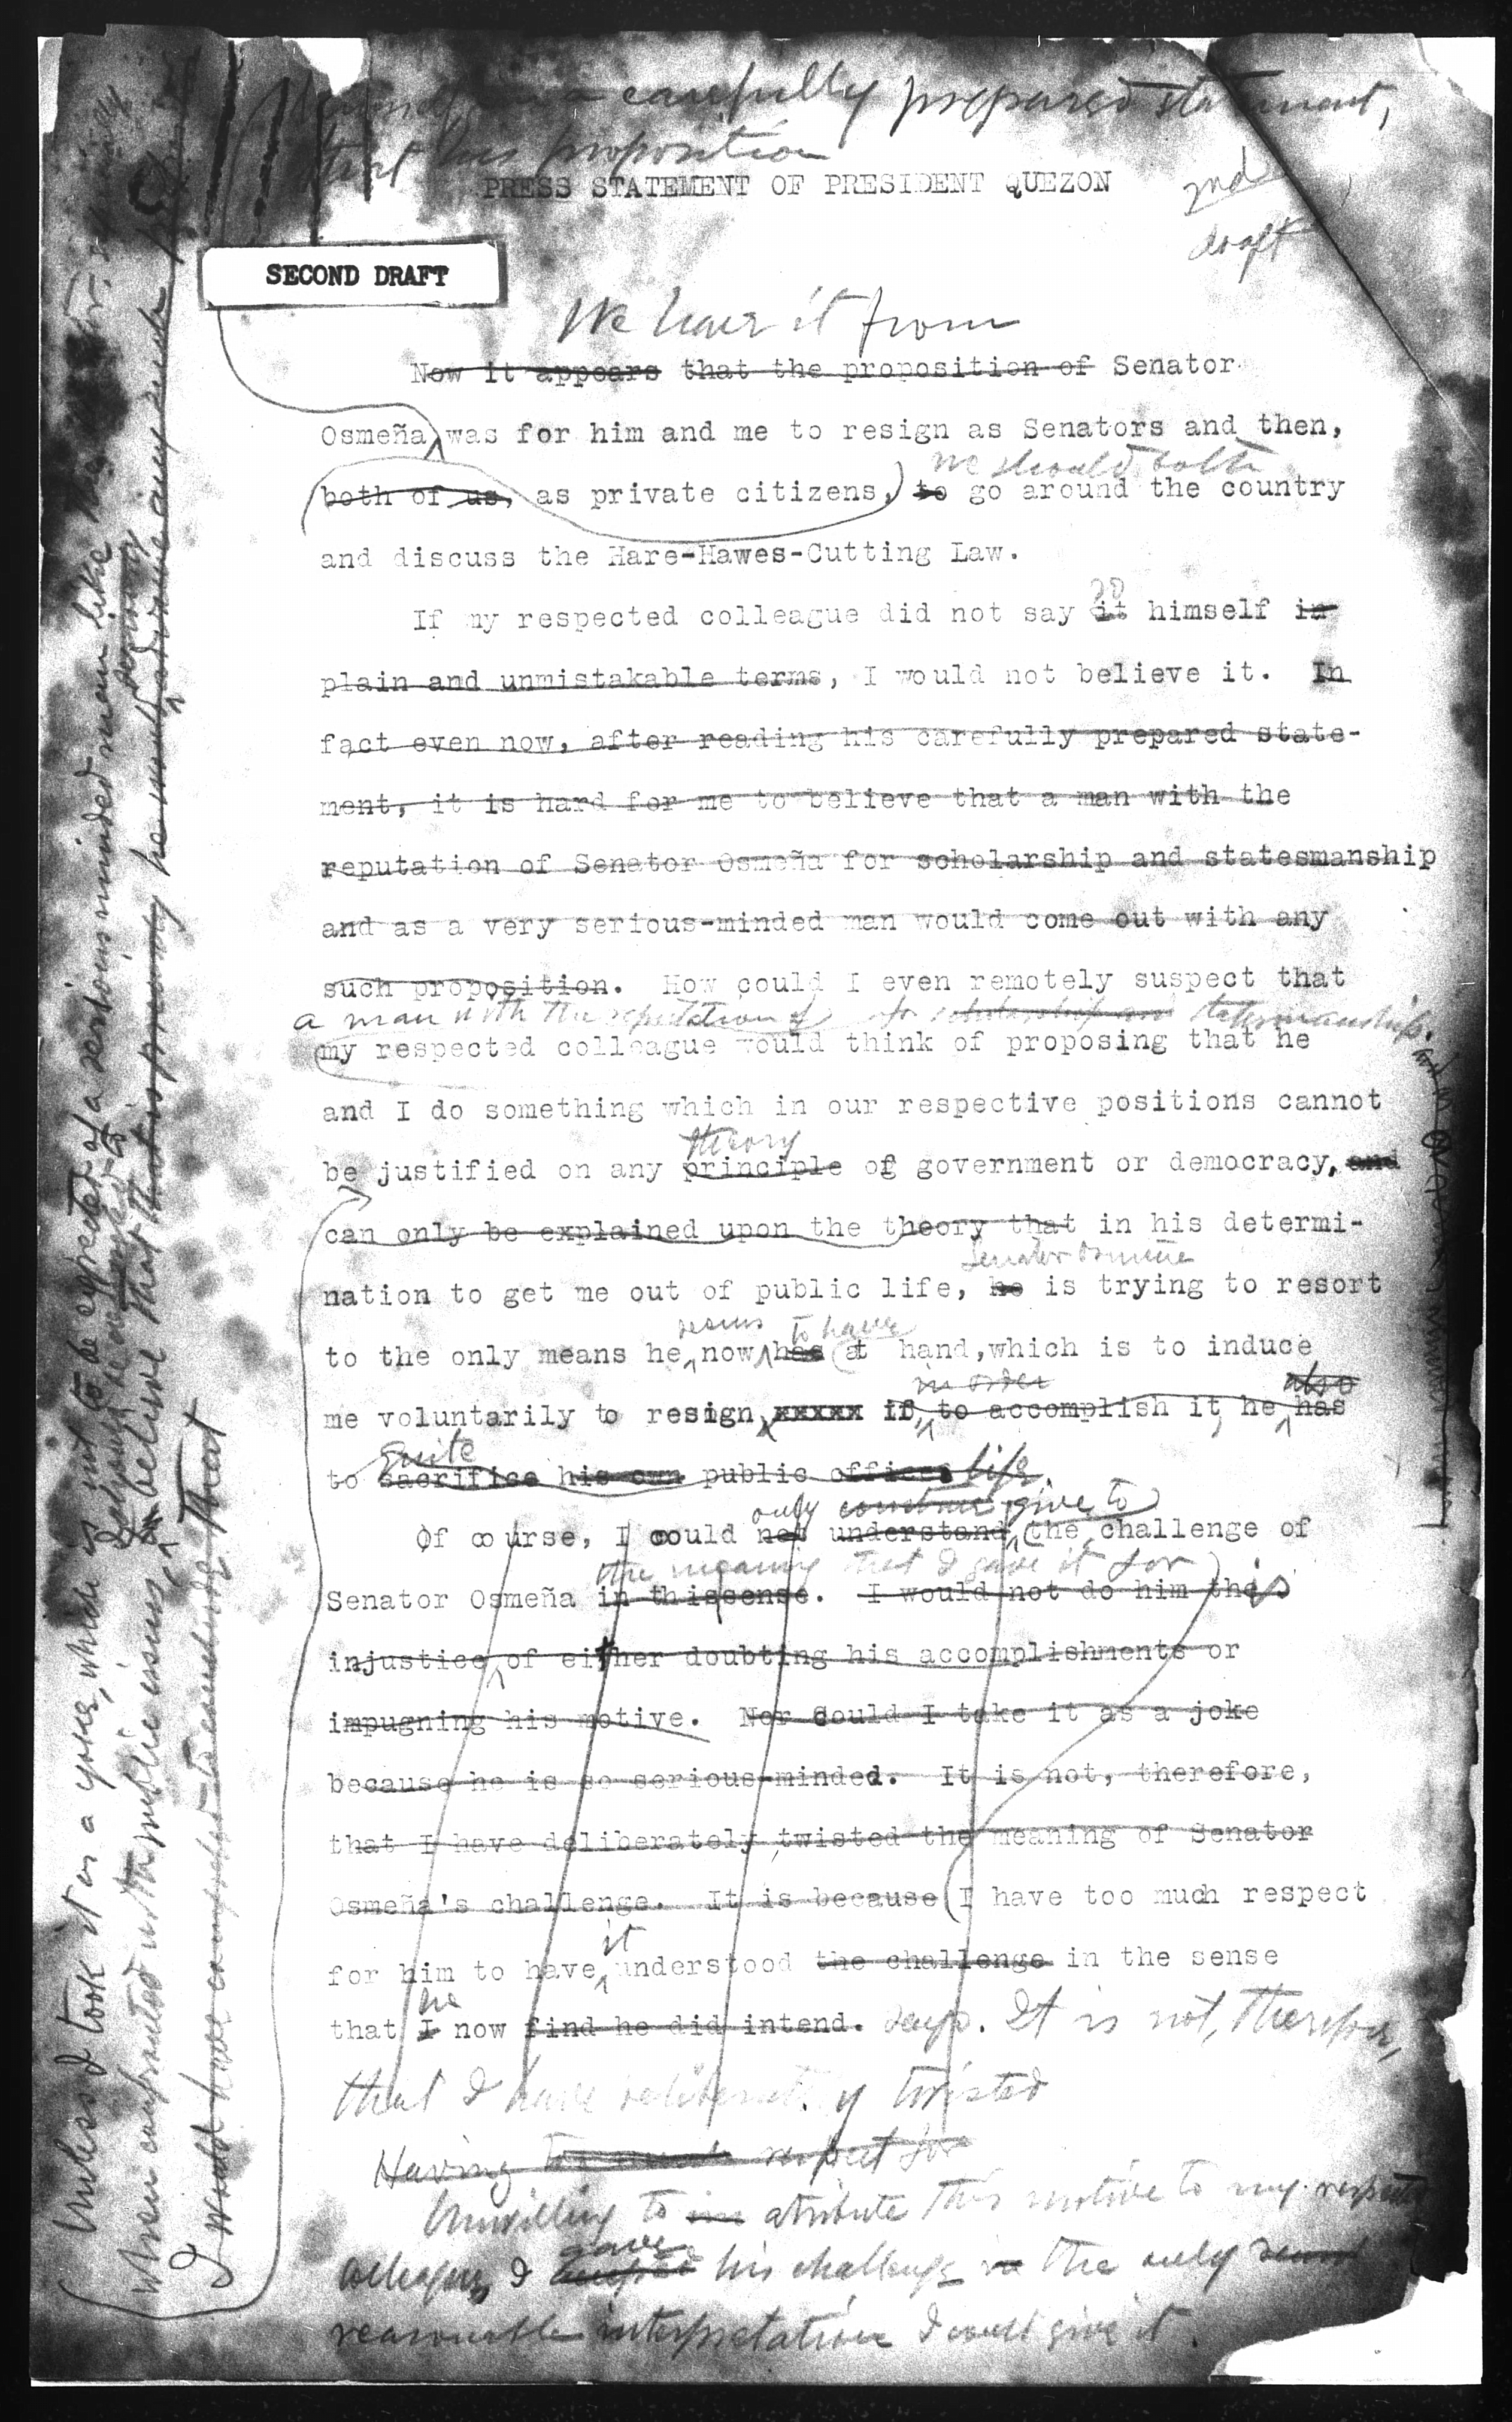 himself in a carefully prepared statement,
that his proposition
PRESS STATEMENT OF PRESIDENT QUEZON
2nd
draft
SECOND DRAFT
We have it from
Now it appears that the proposition of Senator
Osmeña was for him and me to resign as Senators and then,
we should both
both of us, as private citizens, to go around the country
and discuss the Hare-Hawes-Cutting Law.
so
If my respected colleague did not say it himself in
plain and unmistakable terms, I would not believe it. In
fact even now, after reading his carefully prepared state-
ment, it is hard for me to believe that a man with the
reputation of Senator Osmeña for scholarship and statesmanship
and as a very serious-minded man would come out with any
such proposition. How could I even remotely suspect that
a man with the reputation of for scholarship and statesmanship
my respected colleague would think of proposing that he
and I do something which in our respective positions cannot
theory
be justified on any principle of government or democracy, and
can only be explained upon the theory that in his determi-
Senator Osmeña
nation to get me out of public life, he is trying to resort
seems to have
to the only means he now has at hand, which is to induce
in order also
me voluntarily to resign, xxxxx if, to accomplish it, he has
quite
to sacrifice his own public offices life.
only construe give to
Of course, I could not understand the challenge of
the meaning that I gave it for
Senator Osmeña in this sense. I would not do him this
injustice of either doubting his accomplishments or
impugning his motive. Nor Could I take it as a joke
because he is so serious-minded. It is not, therefore,
that I have deliberately twisted the meaning of Senator
Osmeña's challenge. It is because I have too much respect
it
for him to have understood the challenge in the sense
he
that I now find he did intend. says. It is not, therefore,
that I have deliberately twisted
Having too much respect for
Unwilling to attribute this motive to my respected
gave
colleague, I his challenge in the only
reasonable interpretation I could give it.
Unless I took it as a joke, which is not to be expected of a serious minded man like
when confronted with public issues, believe that that is precisely he would advance any such
I would have compelled to conclude that